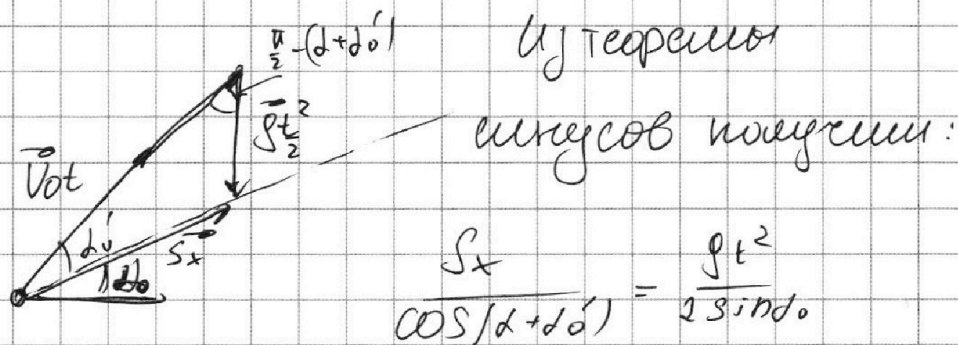 π/2 - (α + α₀')
Из теоремы
g⃗t²/2
синусов получим:
V⃗₀t
α₀'
S⃗ₓ
Sₓ / cos(α + α₀') = gt² / 2 sinα₀